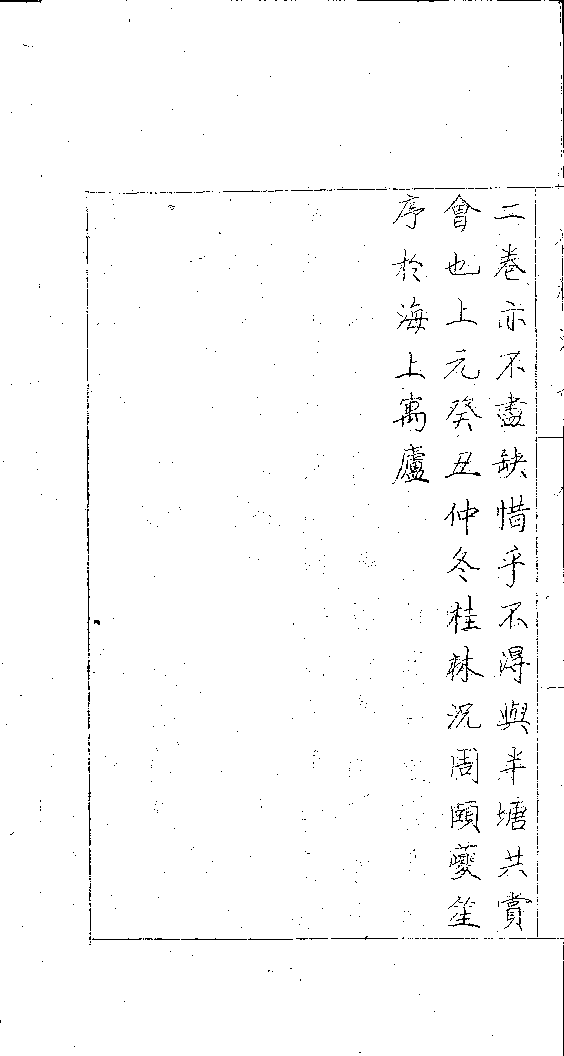 二卷亦不盡缺惜乎不得與半塘共賞
會也上元癸丑仲冬桂林況周頤夔笙
序於海上寓廬